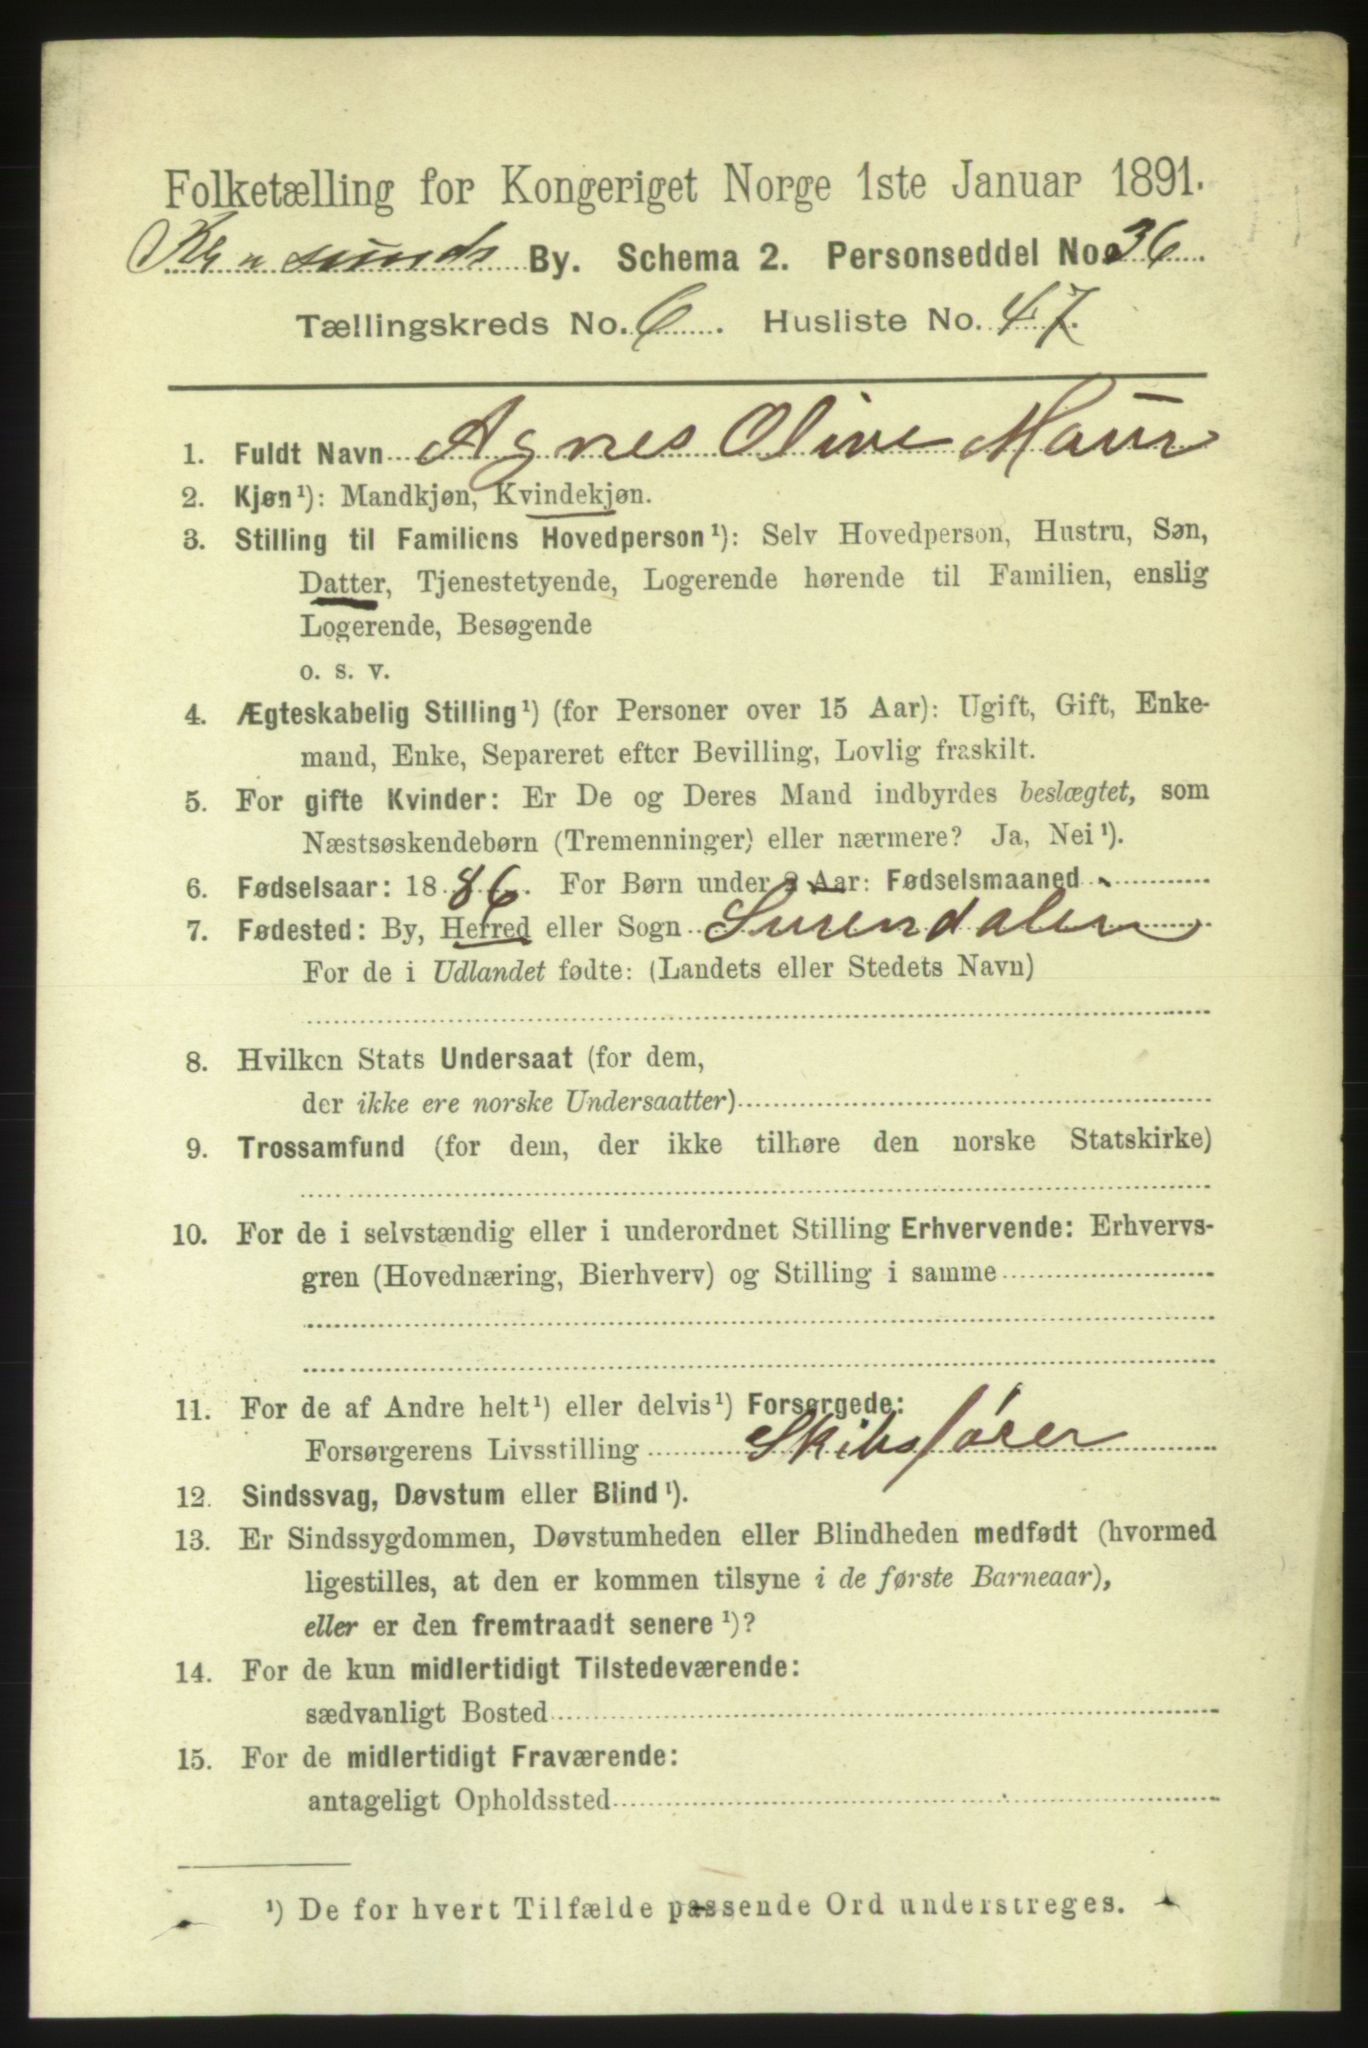 Folketælling for Kongeriget Norge 1ste Januar 1891.
Kr.sunds By. Schema 2. Personseddel No. 36.
Tællingskreds No. 6. Husliste No. 47.
1. Fuldt Navn Agnes Olive Maur
2. Kjøn¹): Mandkjøn, Kvindekjøn.
3. Stilling til Familiens Hovedperson¹): Selv Hovedperson, Hustru, Søn,
Datter, Tjenestetyende, Logerende hørende til Familien, enslig
Logerende, Besøgende
o. s. v.
4. Ægteskabelig Stilling¹) (for Personer over 15 Aar): Ugift, Gift, Enke-
mand, Enke, Separeret efter Bevilling, Lovlig fraskilt.
5. For gifte Kvinder: Er De og Deres Mand indbyrdes beslægtet, som
Næstsøskendebørn (Tremenninger) eller nærmere? Ja, Nei¹).
6. Fødselsaar: 1886. For Børn under 2 Aar: Fødselsmaaned
7. Fødested: By, Herred eller Sogn Surendalen
For de i Udlandet fødte: (Landets eller Stedets Navn)
8. Hvilken Stats Undersaat (for dem,
der ikke ere norske Undersaatter)
9. Trossamfund (for dem, der ikke tilhøre den norske Statskirke)
10. For de i selvstændig eller i underordnet Stilling Erhvervende: Erhvervs-
gren (Hovednæring, Bierhverv) og Stilling i samme
11. For de af Andre helt¹) eller delvis¹) Forsørgede:
Forsørgerens Livsstilling Skibsfører
12. Sindssvag, Døvstum eller Blind¹).
13. Er Sindssygdommen, Døvstumheden eller Blindheden medfødt (hvormed
ligestilles, at den er kommen tilsyne i de første Barneaar),
eller er den fremtraadt senere¹)?
14. For de kun midlertidigt Tilstedeværende:
sædvanligt Bosted
15. For de midlertidigt Fraværende:
antageligt Opholdssted
¹) De for hvert Tilfælde passende Ord understreges.